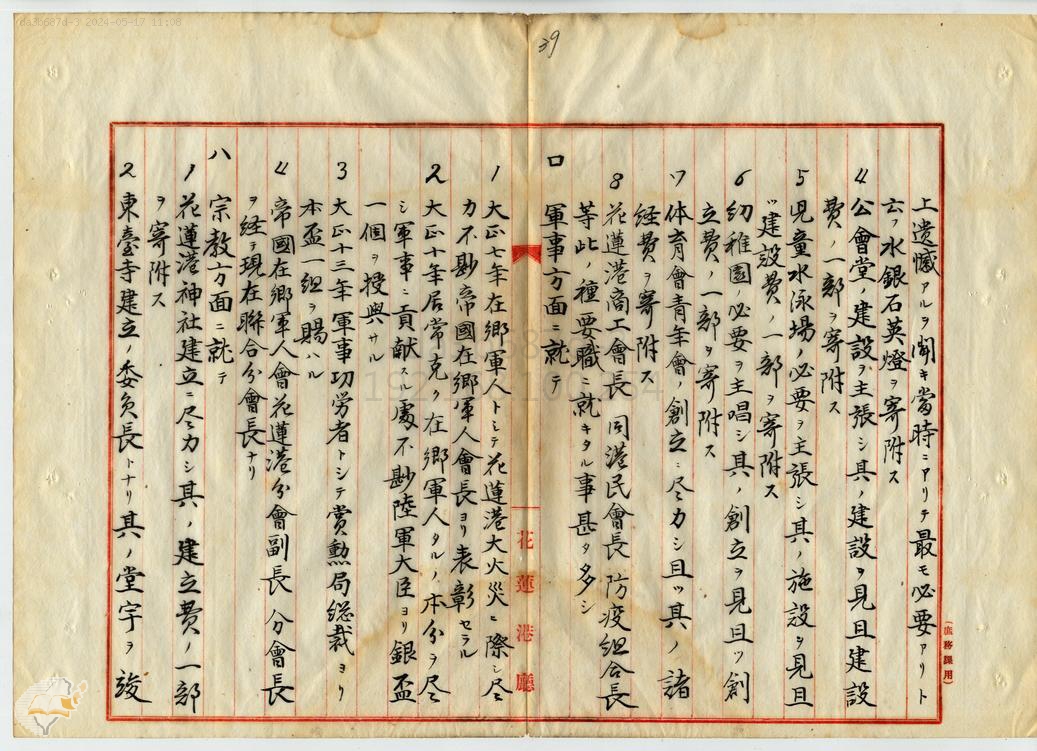 上遺憾アルヲ聞キ當時ニアリテ最モ必要アリト
云フ水銀石英燈ヲ寄附ス
4 公會堂ノ建設ヲ主張シ其ノ建設ヲ見且建設
費ノ一部ヲ寄附ス
5 児童水泳場ノ必要ヲ主張シ其ノ施設ヲ見且
ツ建設費ノ一部ヲ寄附ス
6 幼稚園ノ必要ヲ主唱シ其ノ創立ヲ見且ツ創
立費ノ一部ヲ寄附ス
7 体育會青年會ノ創立ニ尽力シ且ツ其ノ諸
経費ヲ寄附ス
8 花蓮港商工會長 同港民會長 防疫組合長
等此ノ種要職ニ就キタル事甚タ多シ
ロ 軍事方面ニ就テ
1 大正七年在郷軍人トシテ花蓮港大火災ニ際シ尽
力不尠帝國在郷軍人會長ヨリ表彰セラル
2 大正十年居常克ク在郷軍人タルノ本分ヲ尽
シ軍事ニ貢献スル處不尠陸軍大臣ヨリ銀盃
一個ヲ授與サル
3 大正十三年軍事功労者トシテ賞勲局総裁ヨリ
本盃一組ヲ賜ハル
4 帝國在郷軍人會花蓮港分會副長 分會長
ヲ経テ現在聯合分會長ナリ
八 宗教方面ニ就テ
1 花蓮港神社建立ニ尽力シ其ノ建立費ノ一部
ヲ寄附ス
2 東臺寺建立ノ委員長トナリ其ノ堂宇ヲ竣
花蓮港廳
(庶務課用)
39
2024-05-17 11:08